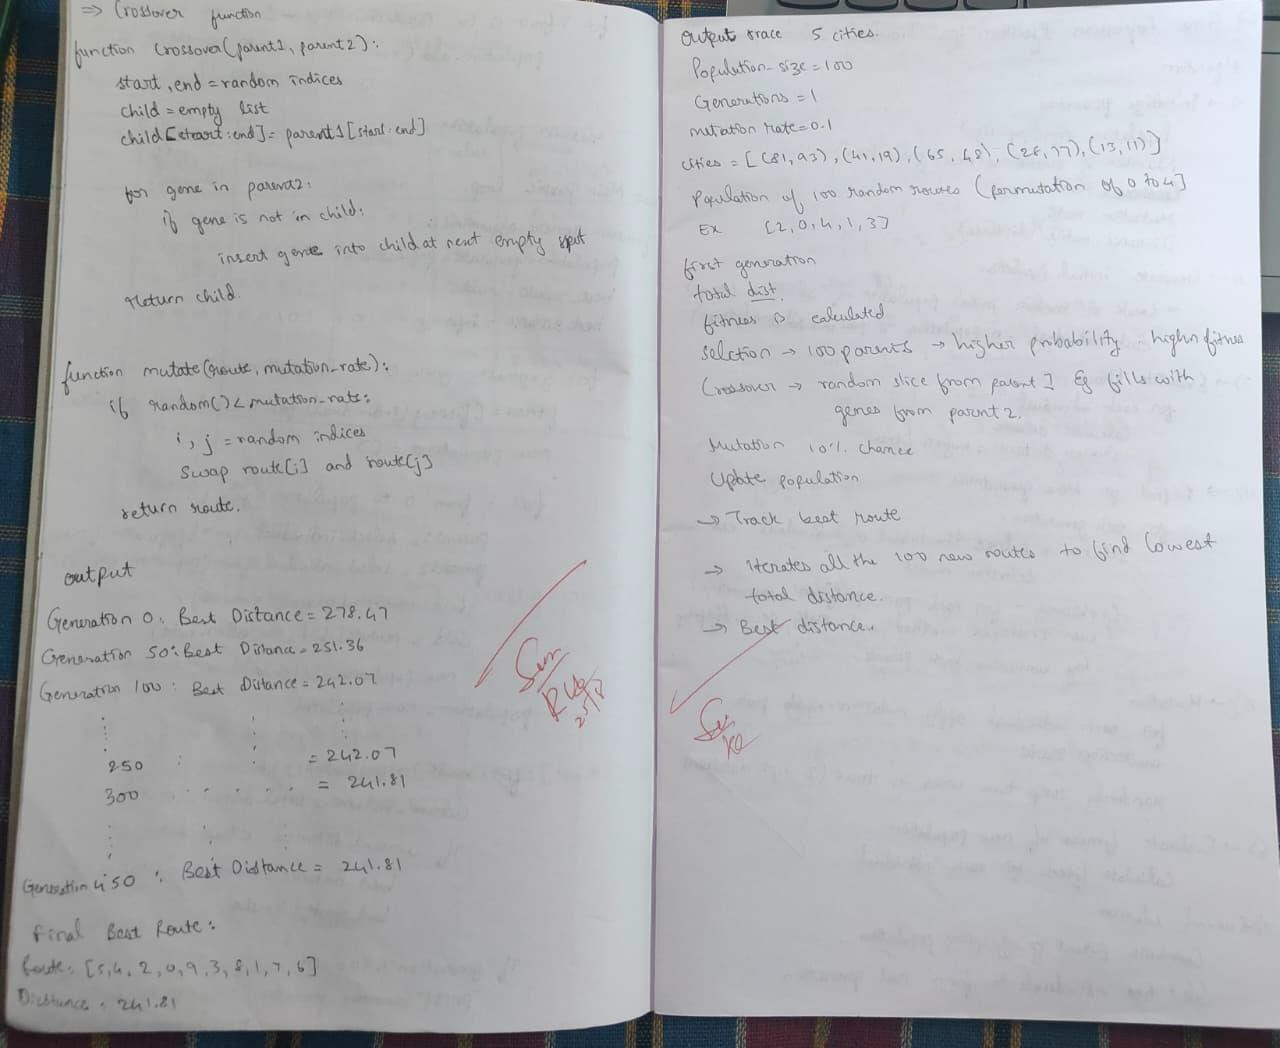 ⇒ Crossover function
function Crossover(parent1, parent2):
start, end = random indices
child = empty list
child[start:end] = parent1[start:end]
for gene in parent2:
if gene is not in child:
insert gene into child at next empty spot
return child.
function mutate(route, mutation_rate):
if random() < mutation-rate:
i, j = random indices
swap route[i] and route[j]
return route.
output
Generation 0: Best Distance = 278.47
Generation 50: Best Distance = 251.36
Generation 100: Best Distance = 242.07
250 : : = 242.07
300 . . . . . . = 241.81
Generation 450 : Best Distance = 241.81
Final Best Route:
Route: [5,4,2,0,9,3,8,1,7,6]
Distance: 241.81
Output trace 5 cities.
Population-size = 100
Generations = 1
mutation rate = 0.1
cities = [(81,93), (41,19), (65, 48), (26,77), (13,11)]
Population of 100 random routes (permutation of 0 to 4]
Ex [2,0,4,1,3]
first generation
total dist.
fitness is calculated
Selction → 100 parents → higher probability highn fitnes
Crossover → random slice from parent 1 & fills with
genes from parent 2.
Mutation 10% chance
Update population
→ Track best route
→ iterates all the 100 new routes to find lowest
total distance.
→ Best distance.